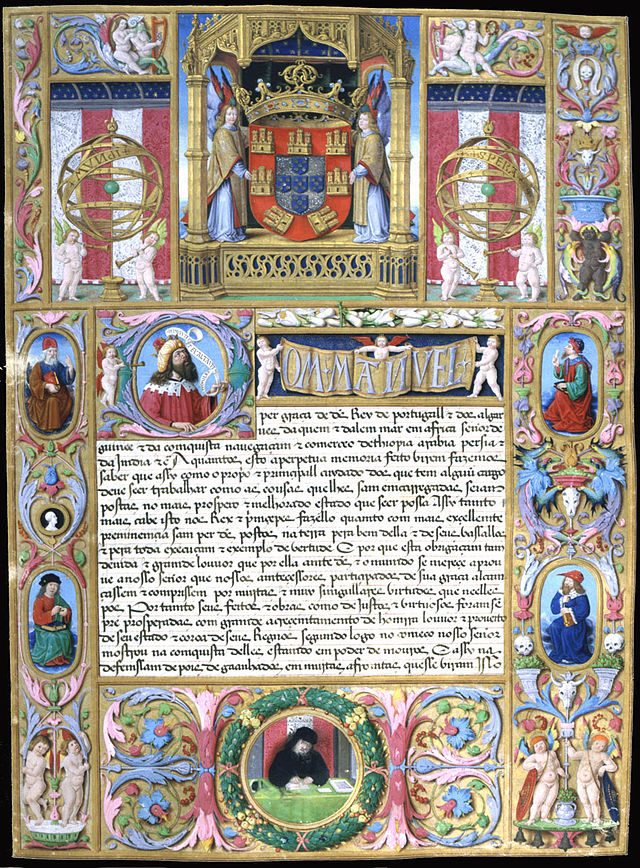 MVNDI
SPERA
OM·MANVEL
per graça de dẽs Rey de portugall & dos algar
ues daquem & dalem mar em africa senor de
guinee & da comquista nauegacam & comercio dethiopia arabia persia &
da India &c A quantos esto a perpetua memoria feito birem fazemos
saber que assy como o propeo & principall cuydado dos que tem alguũ cargo
deue seer trabalhar como as cousas que lhes sam encarregadas seiam
postas no mais prospero & melhorado estado que seer possa Assy tanto
mais cabe isto nos Rex & principes fazello quanto com mais excellente
preminencia sam per ds postos na terra pera bem della & de seus bassallos
& pera toda execuçam & exemplo de bertude E por que esta obrigaçam tam
deuida & grande louuor que por ella ante ds & o mundo se mereçe aprou
ue a nosso señor que nossos anteçessores participados de sua graça alcan
cassem & comprissem por muytas & muy singullares virtudes que nelles
pos. Por tanto seus feitos & obras como de Justos & virtuosos foram sẽ
pre prosperados com grande acreçentamento de homrra louuor & proueito
de seu estado & coroa de seus Regnos segundo logo no começo nosso señor
mostrou na comquista delles estando em poder de mouros E asy na
defenssam de pois de gaanhados em muytas afrontas que sse biram Isso